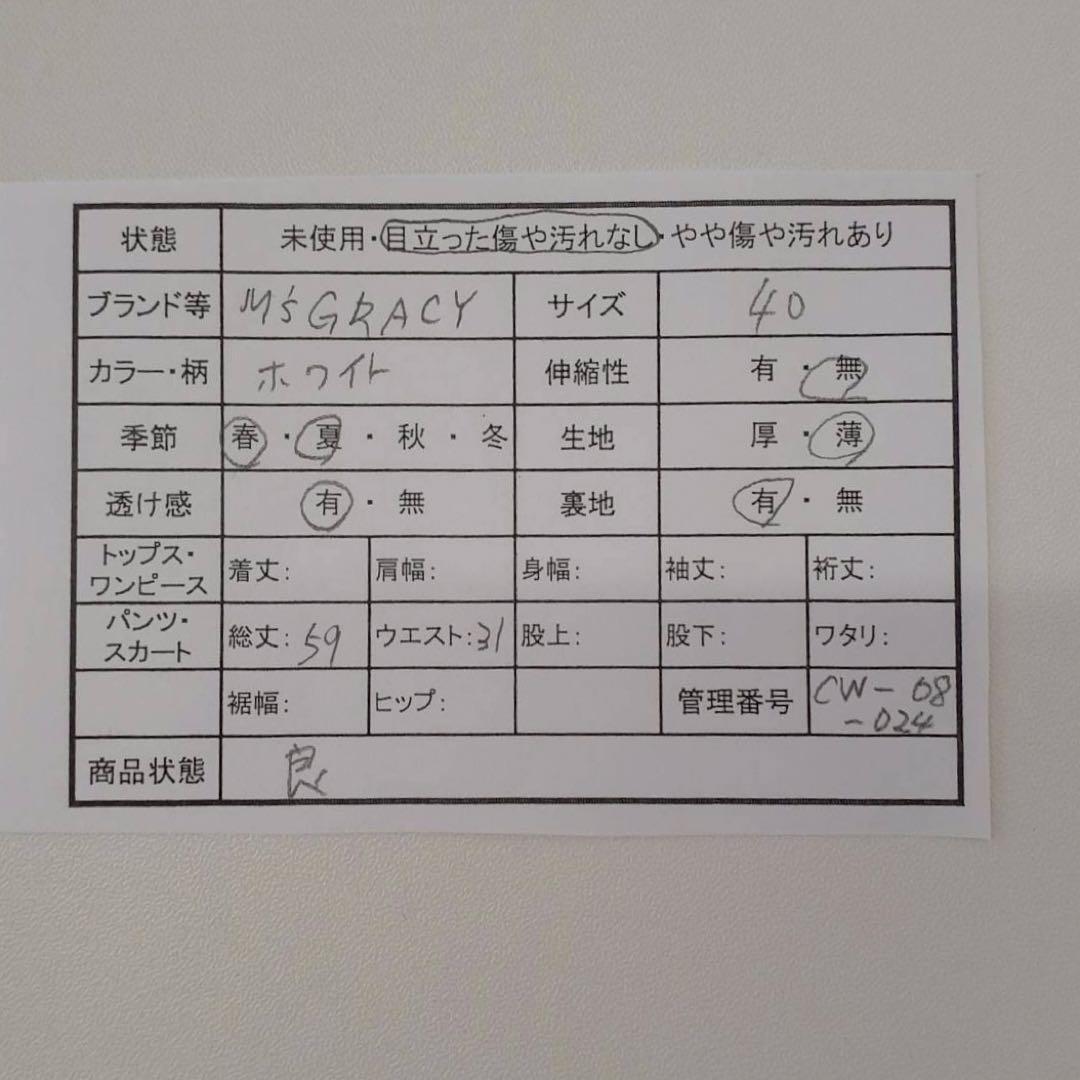 状態 未使用・目立った傷や汚れなし・やや傷や汚れあり
ブランド等 M'sGRACY サイズ 40
カラー・柄 ホワイト 伸縮性 有・無
季節 春・夏・秋・冬 生地 厚・薄
透け感 有・無 裏地 有・無
トップス・
ワンピース 着丈: 肩幅: 身幅: 袖丈: 裄丈:
パンツ・
スカート 総丈:59 ウエスト:31 股上: 股下: ワタリ:
裾幅: ヒップ: 管理番号 CW-08
-024
商品状態 良